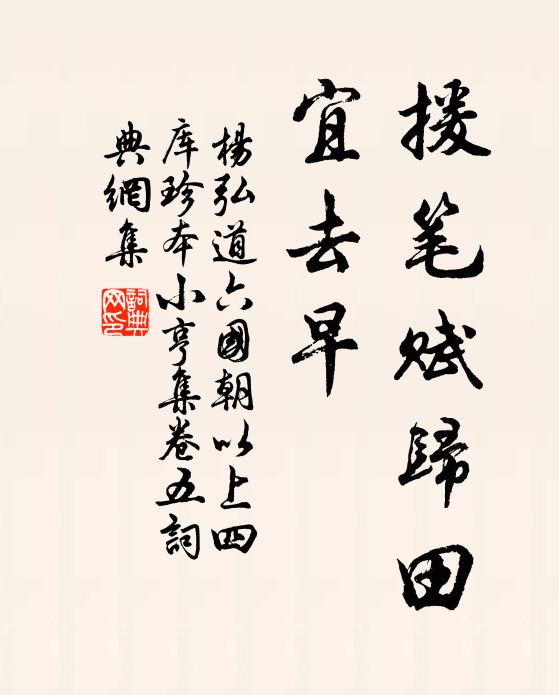 援笔赋歸田
宜去早
楊弘道六國朝以上四
库珍本小亨集卷五詞
典網集
詞典
网印